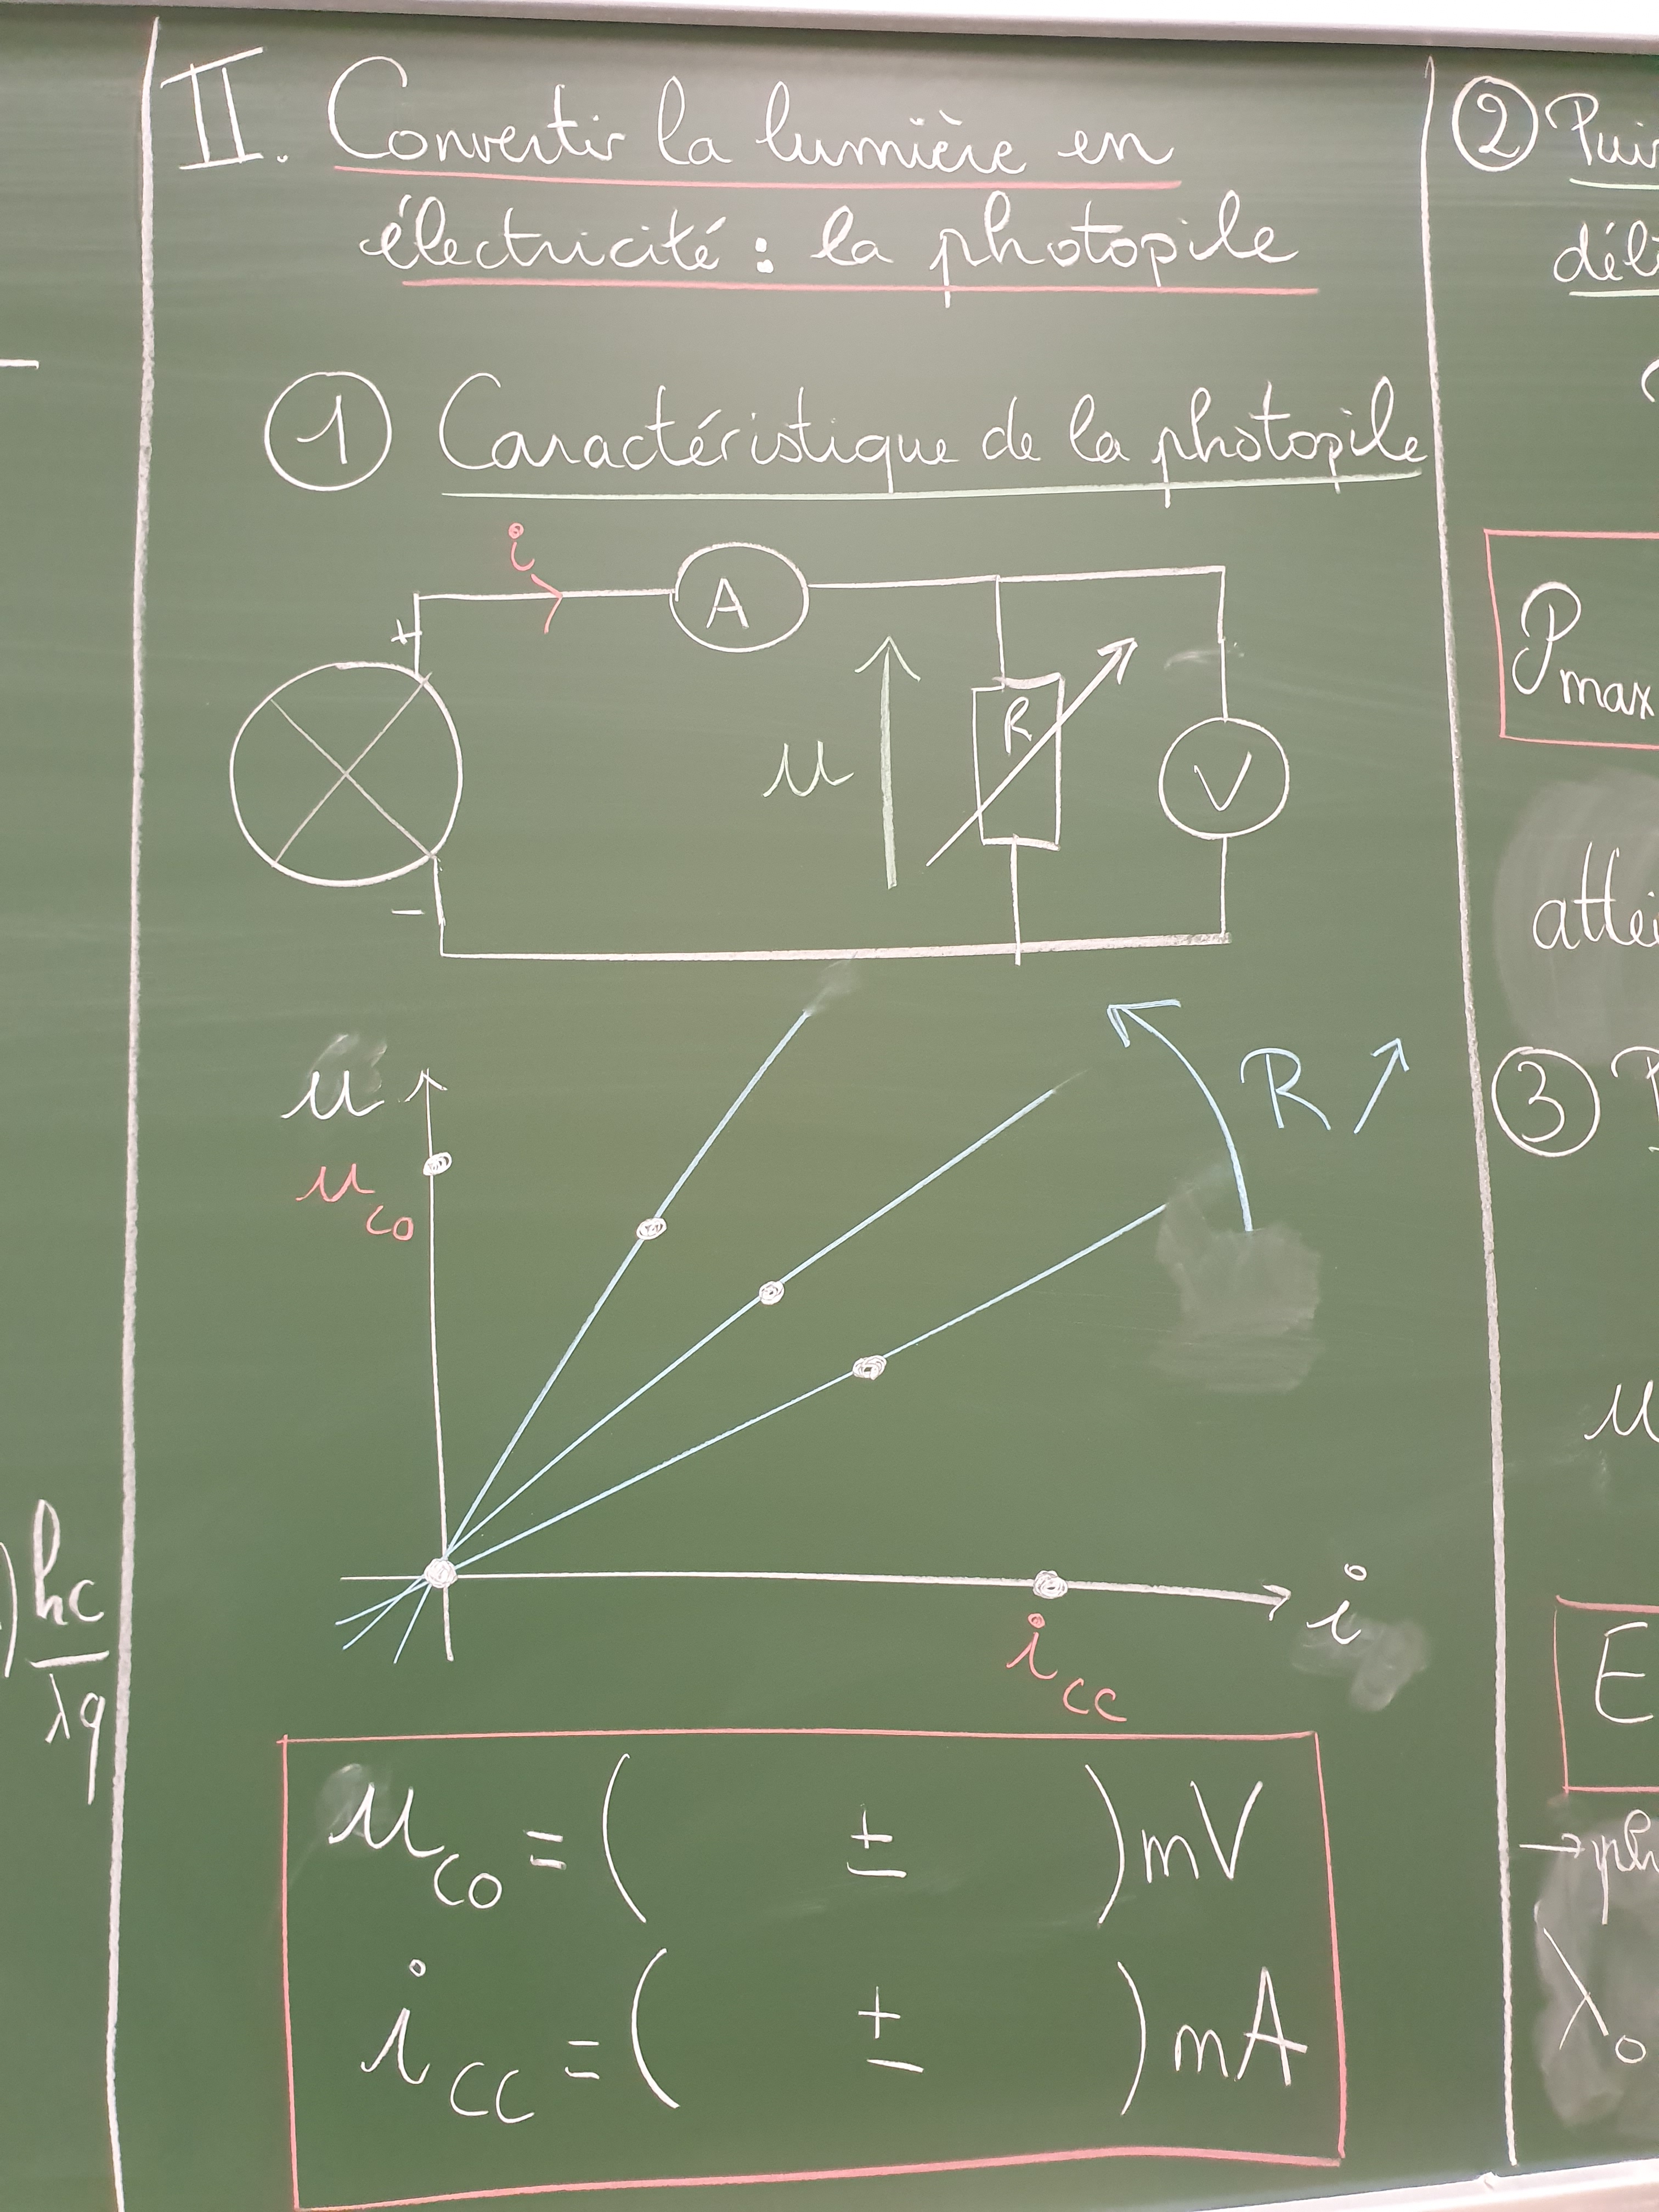 II. Convertir la lumière en
électricité : la photopile
① Caractéristique de la photopile
i
A
+
u
R
V
-
u
u_co
R ↗
i
i_cc
u_co = ( ± ) mV
i_cc = ( ± ) mA
) hc
λq
②
P_max
③
u
E
λ_0